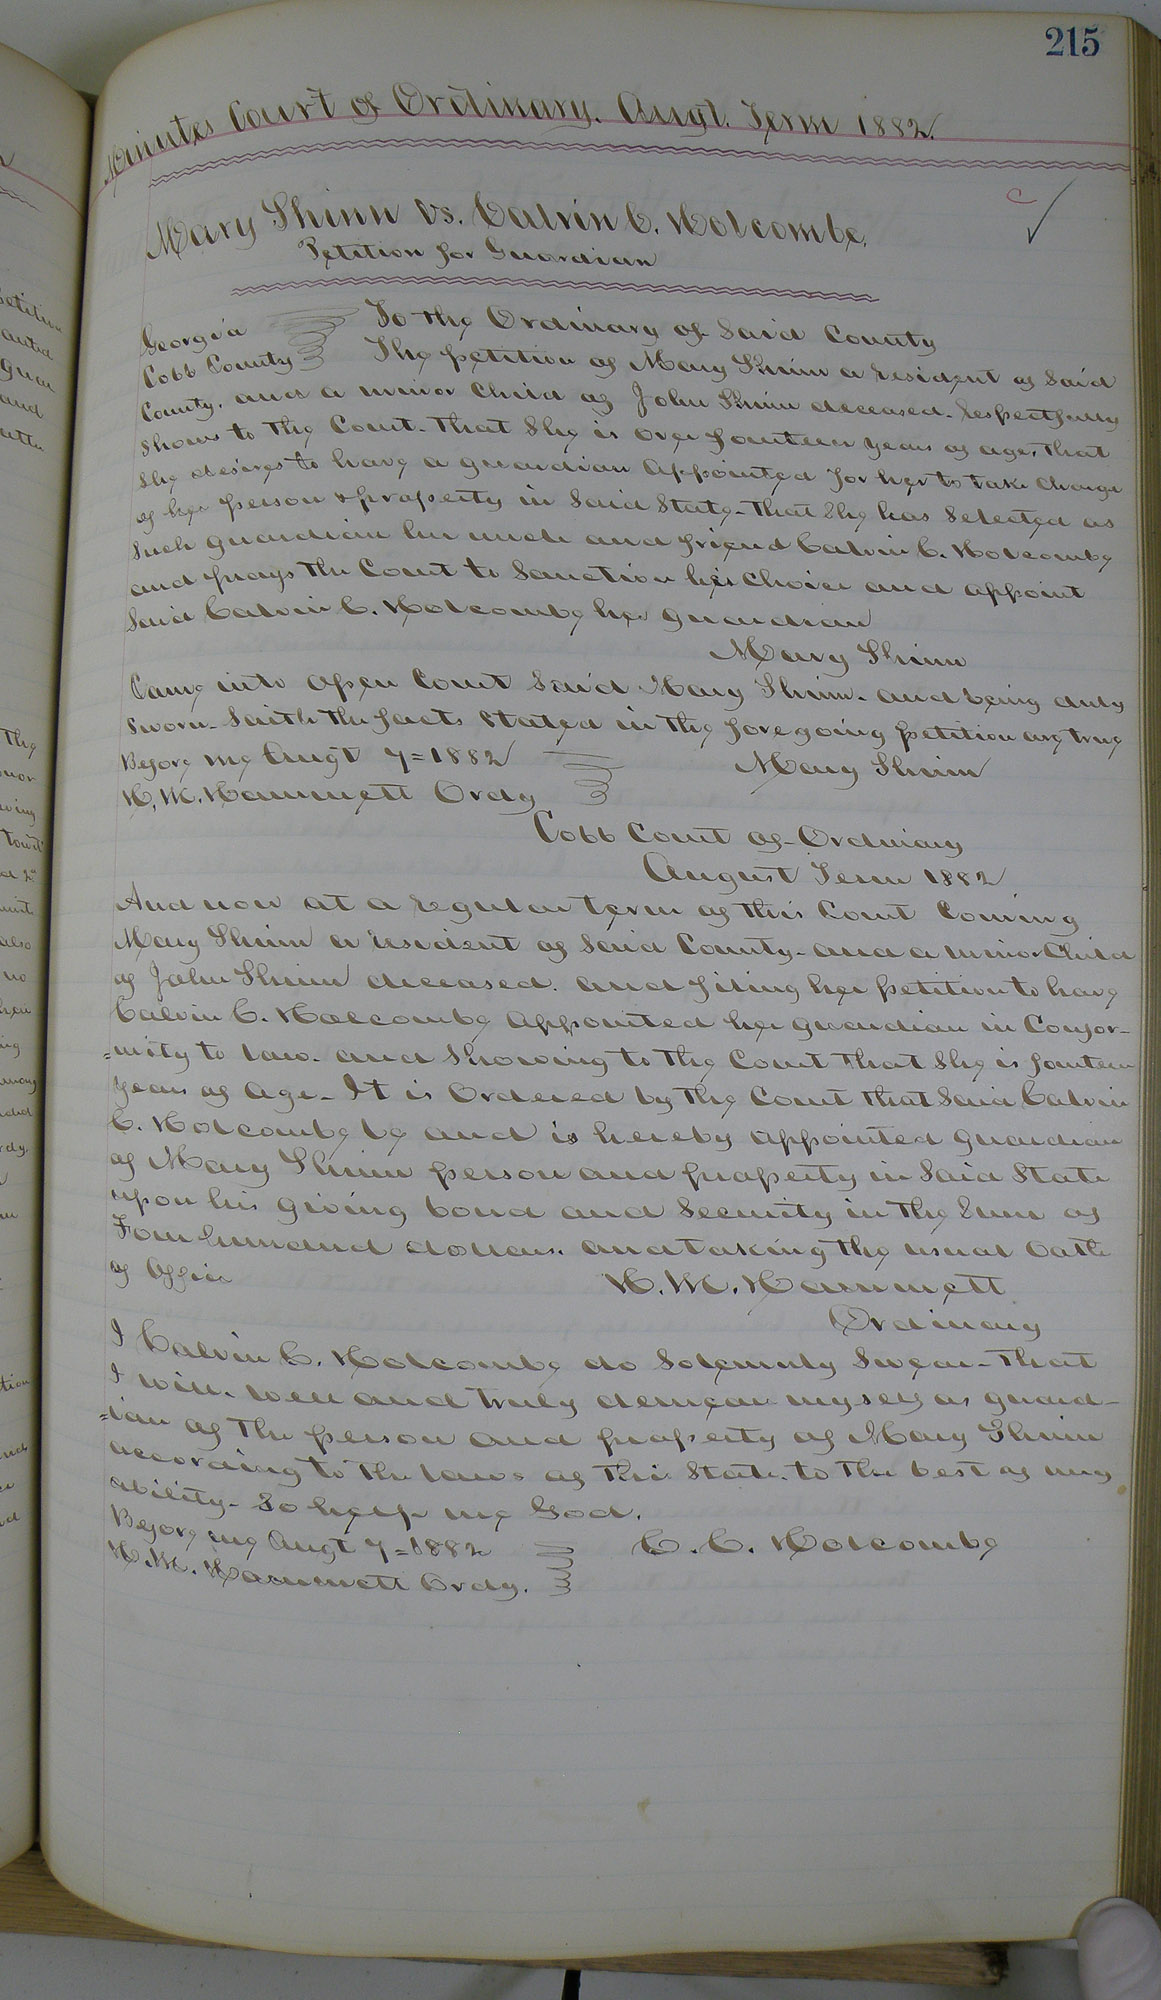 215
Minutes Court of Ordinary. Augt. Term 1882.
C
Mary Shinn Vs. Calvin C. Holcombe.
Petition for Guardian
Georgia
Cobb County
To the Ordinary of Said County
The petition of Mary Shinn a resident of Said
County, and a minor Child of John Shinn deceased. respectfully
shows to the Court. That She is over fourteen years of age, that
She desires to have a guardian appointed for her to take charge
of her person & property in Said State. That She has Selected as
Such guardian her uncle and friend Calvin C. Holcombe
and prays the Court to Sanction her Choice and appoint
Said Calvin C. Holcombe her guardian
Mary Shinn
Came into open Court Said Mary Shinn. and being duly
Sworn. Saith the facts Stated in the foregoing petition are true
Before me Augt 7=1882
Mary Shinn
H. M. Hammett Ordy
Cobb Court of Ordinary
August Term 1882
And now at a regular term of this Court Coming
Mary Shinn a resident of Said County. and a minor Child
of John Shinn deceased. and filing her petition to have
Calvin C. Holcombe appointed her guardian in Confor-
=mity to law. and Showing to the Court that She is fourteen
years of age. It is Ordered by the Court that Said Calvin
C. Holcombe be and is hereby appointed guardian
of Mary Shinn person and property in Said State
upon his giving bond and Security in the Sum of
Four hundred dollars. and taking the usual Oath
of Office
H. M. Hammett
Ordinary
I Calvin C. Holcombe do Solemnly Swear. That
I will. well and truly demean myself as guard-
=ian of the person and property of Mary Shinn
according to the laws of this State. to the best of my
ability. So help me God.
Before me Augt 7=1882
C. C. Holcombe
H. M. Hammett Ordy.